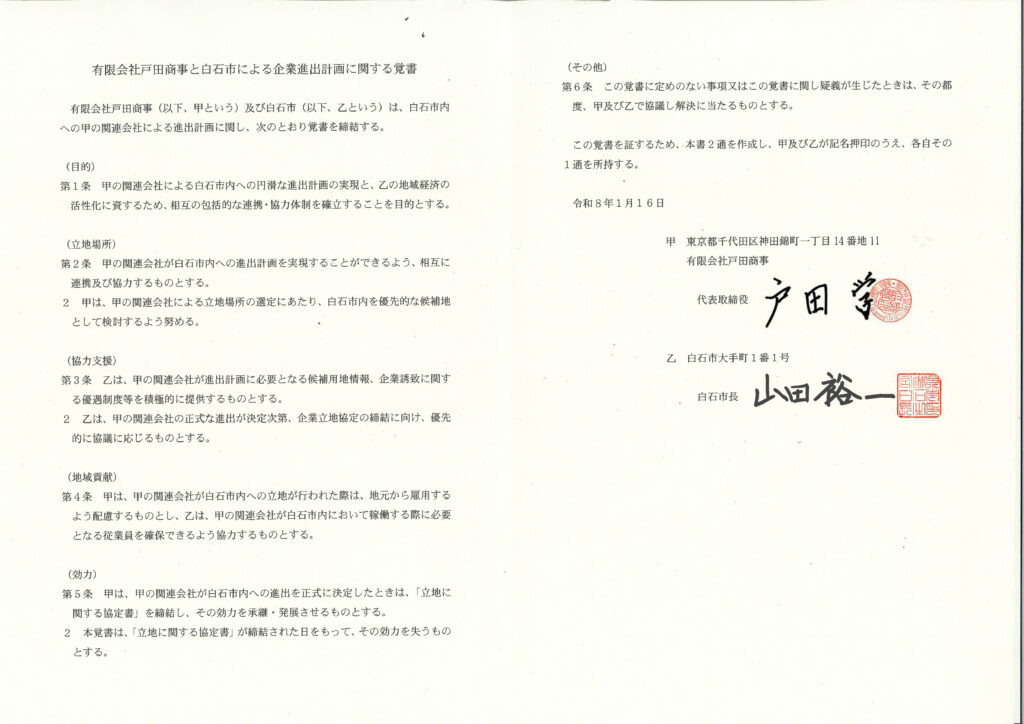 有限会社戸田商事と白石市による企業進出計画に関する覚書
有限会社戸田商事（以下、甲という）及び白石市（以下、乙という）は、白石市内
への甲の関連会社による進出計画に関し、次のとおり覚書を締結する。
（目的）
第１条　甲の関連会社による白石市内への円滑な進出計画の実現と、乙の地域経済の
活性化に資するため、相互の包括的な連携・協力体制を確立することを目的とする。
（立地場所）
第２条　甲の関連会社が白石市内への進出計画を実現することができるよう、相互に
連携及び協力するものとする。
２　甲は、甲の関連会社による立地場所の選定にあたり、白石市内を優先的な候補地
として検討するよう努める。
（協力支援）
第３条　乙は、甲の関連会社が進出計画に必要となる候補用地情報、企業誘致に関す
る優遇制度等を積極的に提供するものとする。
２　乙は、甲の関連会社の正式な進出が決定次第、企業立地協定の締結に向け、優先
的に協議に応じるものとする。
（地域貢献）
第４条　甲は、甲の関連会社が白石市内への立地が行われた際は、地元から雇用する
よう配慮するものとし、乙は、甲の関連会社が白石市内において稼働する際に必要
となる従業員を確保できるよう協力するものとする。
（効力）
第５条　甲は、甲の関連会社が白石市内への進出を正式に決定したときは、「立地に
関する協定書」を締結し、その効力を承継・発展させるものとする。
２　本覚書は、「立地に関する協定書」が締結された日をもって、その効力を失うもの
とする。
（その他）
第６条　この覚書に定めのない事項又はこの覚書に関し疑義が生じたときは、その都
度、甲及び乙で協議し解決に当たるものとする。
この覚書を証するため、本書２通を作成し、甲及び乙が記名押印のうえ、各自その
１通を所持する。
令和８年１月１６日
甲　東京都千代田区神田錦町一丁目14番地11
有限会社戸田商事
代表取締役　戸田 学
乙　白石市大手町１番１号
白石市長　山田裕一